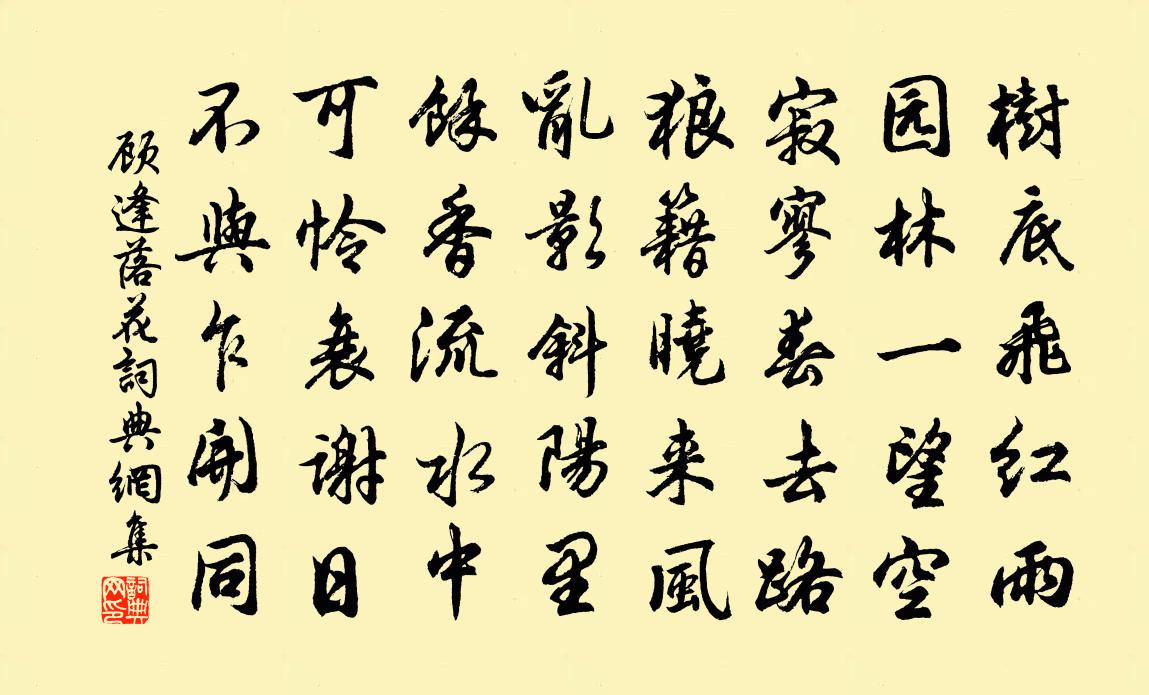 樹底飛红雨
园林一望空
寂寥春去路
狼籍曉来風
亂影斜陽里
餘香流水中
可怜衰謝日
不與乍開同
顾逢落花詞典網集
詞典网印